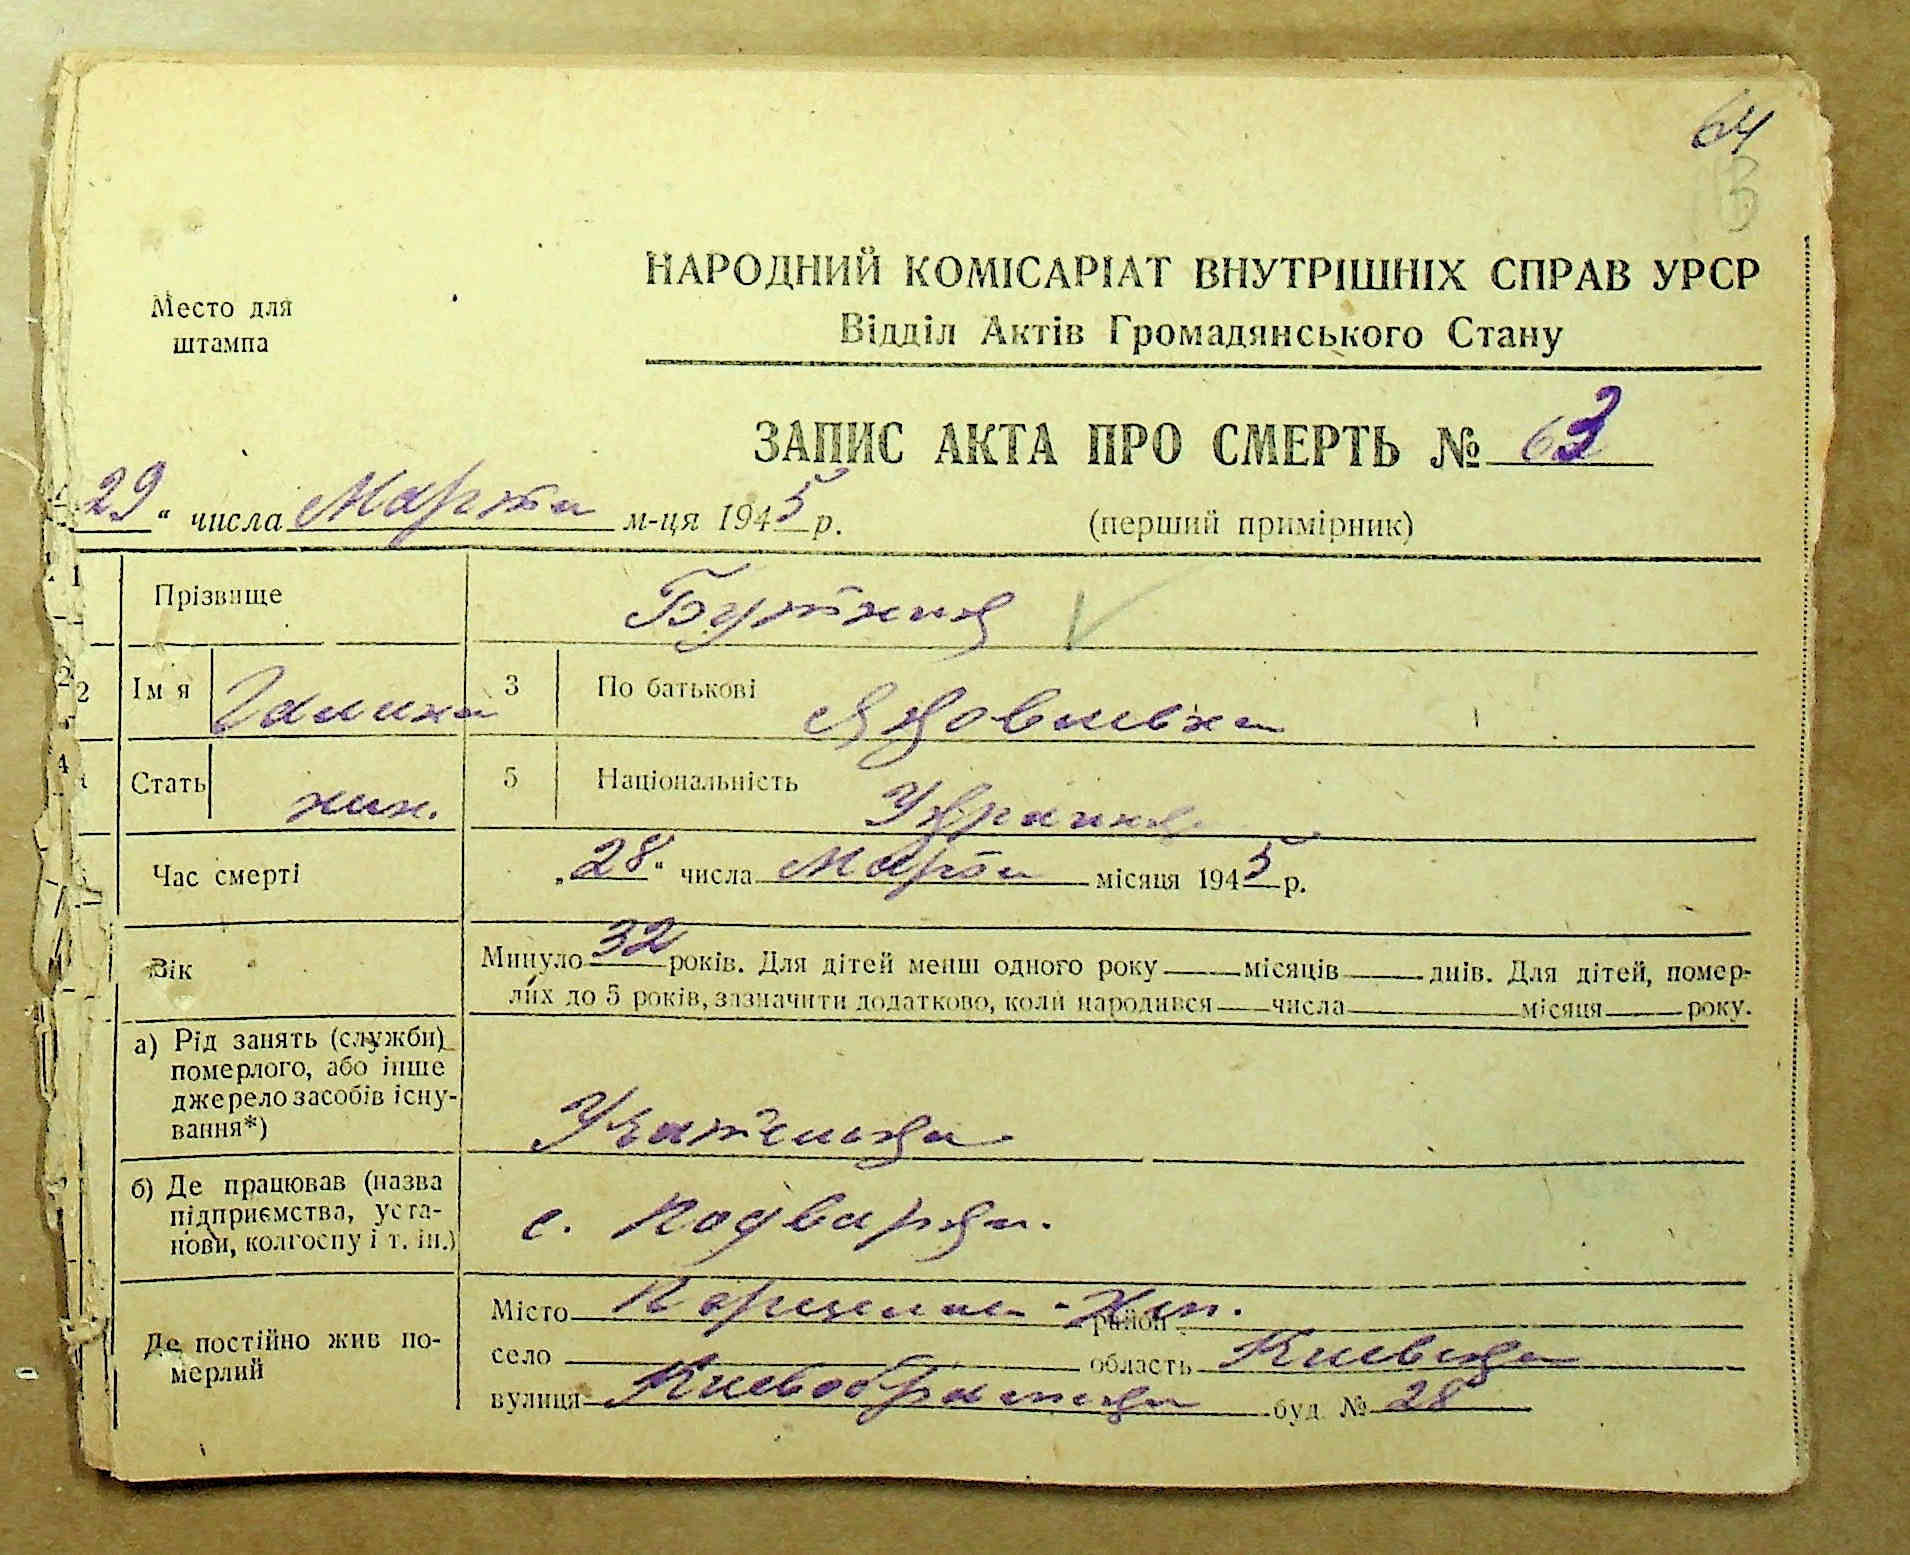 64
Место для
штампа
НАРОДНИЙ КОМІСАРІАТ ВНУТРІШНІХ СПРАВ УРСР
Відділ Актів Громадянського Стану
ЗАПИС АКТА ПРО СМЕРТЬ № 63
29 " числа Марта м-ця 1945 р. (перший примірник)
1 Прізвище
2 Ім я Галина 3 По батькові Яковливна
4 Стать жин. 5 Національність Украинка
Час смерті „28" числа Марта місяця 1945 р.
Вік Минуло 32 років. Для дітей менш одного року місяців днів. Для дітей, помер-
лих до 5 років, зазначити додатково, коли народився числа місяця року.
а) Рід занять (служби)
померлого, або інше
джерело засобів існу-
вання*) Учителька
б) Де працював (назва
підприємства, уста-
нови, колгоспу і т. ін.) с. Подварки.
Де постійно жив по-
мерлий
Місто район
село область Киевска
вулиця буд. № 28